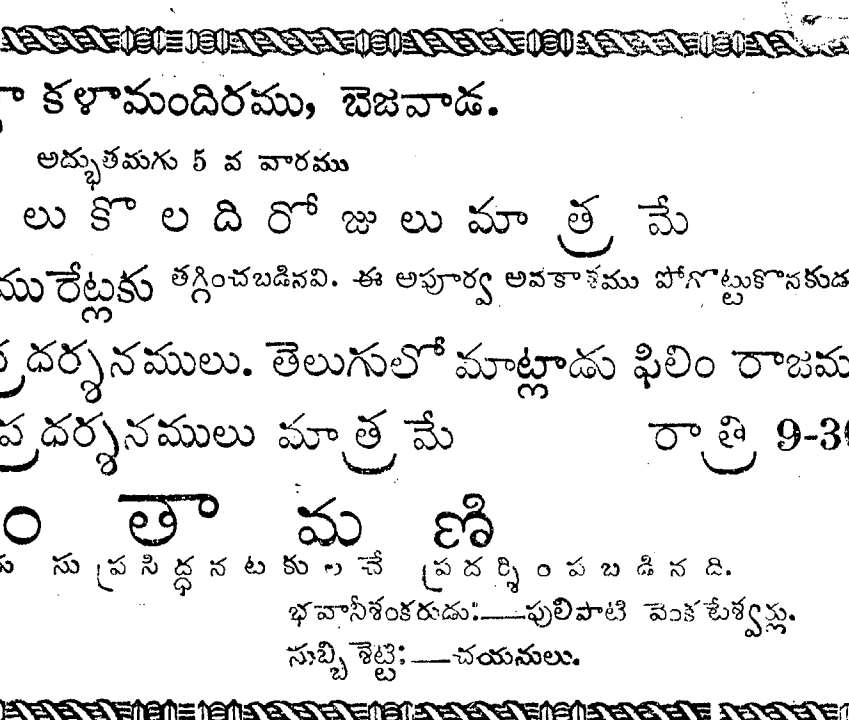 కళామందిరము, బెజవాడ.
అద్భుతమగు 5 వ వారము
లు కొ ల ది రో జు లు మా త్ర మే
మురేట్లకు తగ్గించబడినవి. ఈ అపూర్వ అవకాశము పోగొట్టుకొనకుడ
ప్రదర్శనములు. తెలుగులో మాట్లాడు ఫిలిం రాజమ
ప్రదర్శనములు మాత్రమే రాత్రి 9-30
ం తా మ ణి
సు ప్ర సి ద్ధ న ట కు ల చే ప్ర ద ర్శి ం ప బ డి న ది.
భవానీశంకరుడు:—పులిపాటి వెంకటేశ్వర్లు.
సుబ్బిశెట్టి:—చయనులు.